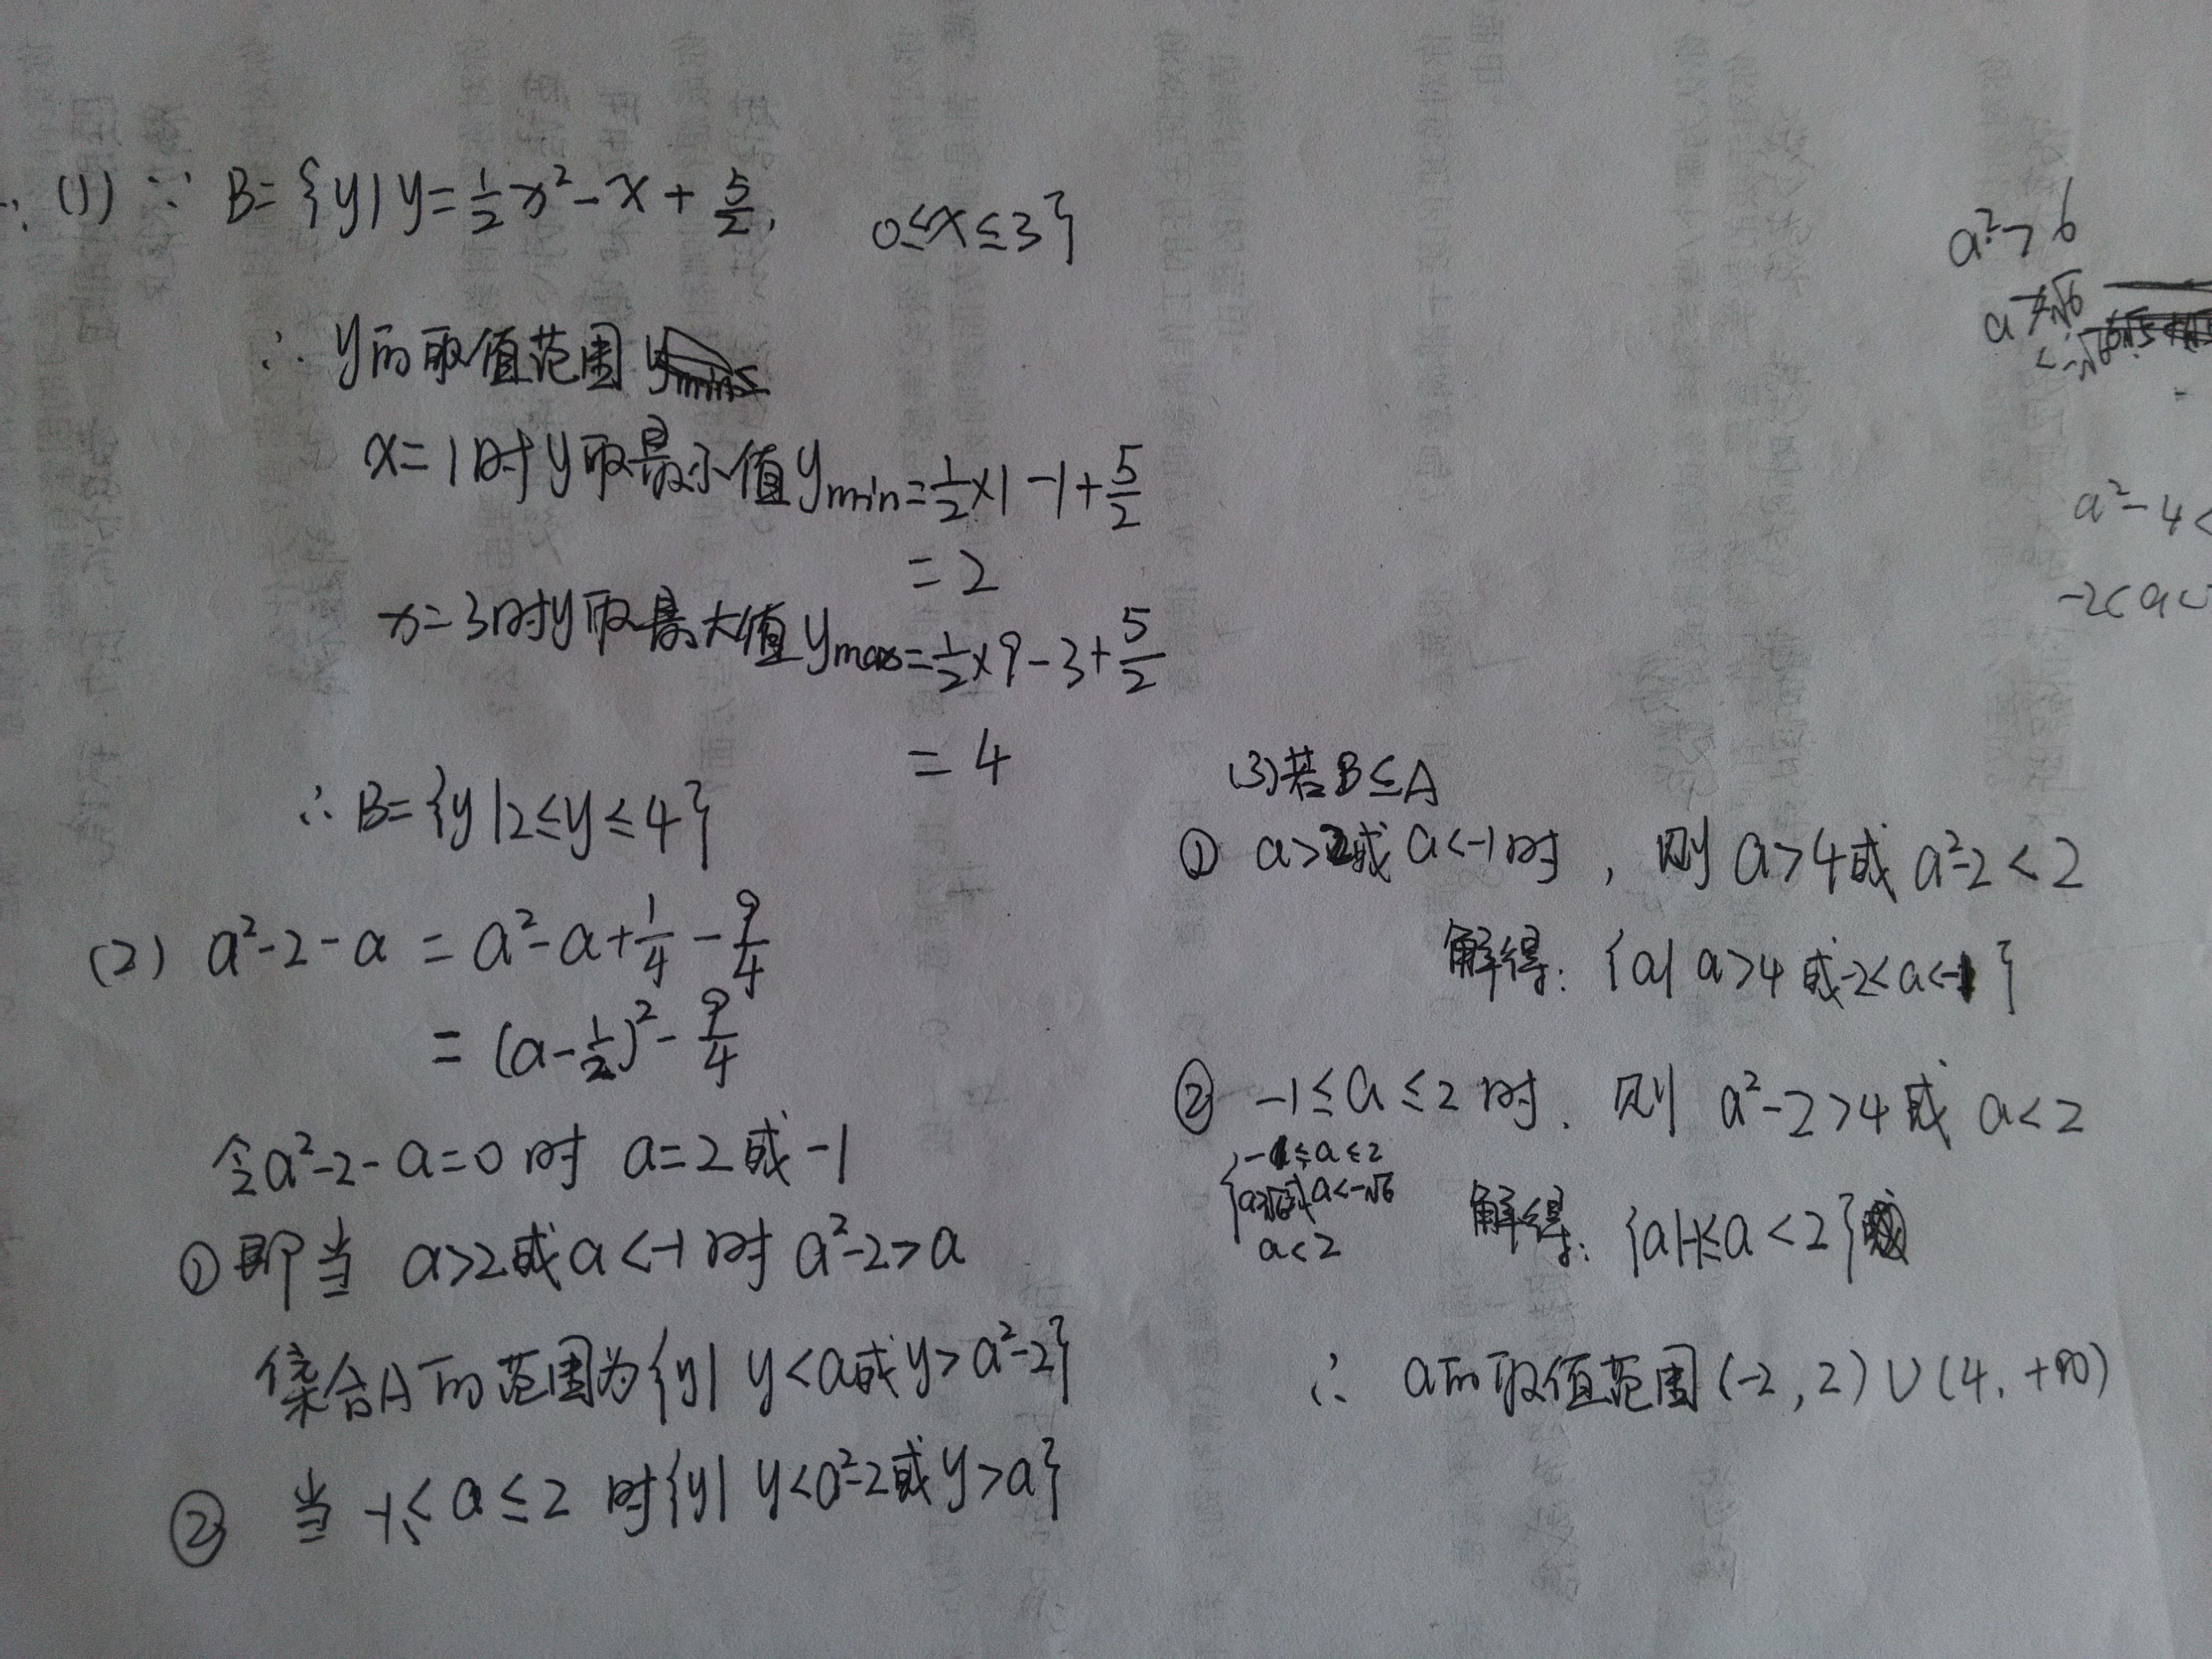 (1) ∵ B={y|y=½x²-x+5/2, 0≤x≤3}
∴ y的取值范围
x=1时y取最小值ymin=½×1-1+5/2
=2
x=3时y取最大值ymax=½×9-3+5/2
=4
∴ B={y|2≤y≤4}
(2) a²-2-a = a²-a+1/4-9/4
= (a-½)²-9/4
令a²-2-a=0时 a=2或-1
① 即当 a>2或a<-1时 a²-2>a
集合A的范围为{y| y<a或y>a²-2}
② 当 -1≤a≤2 时{y| y<a²-2或y>a}
(3)若B⊆A
① a>2或a<-1时, 则 a>4或 a²-2<2
解得: {a| a>4或-2<a<-1}
② -1≤a≤2时. 则 a²-2>4或 a<2
-1≤a≤2
a>√6或a<-√6
a<2
解得: {a|-1≤a<2}
∴ a的取值范围(-2,2)∪(4,+∞)
a²>6
a>√6
<-√6
a²-4<
-2<a<